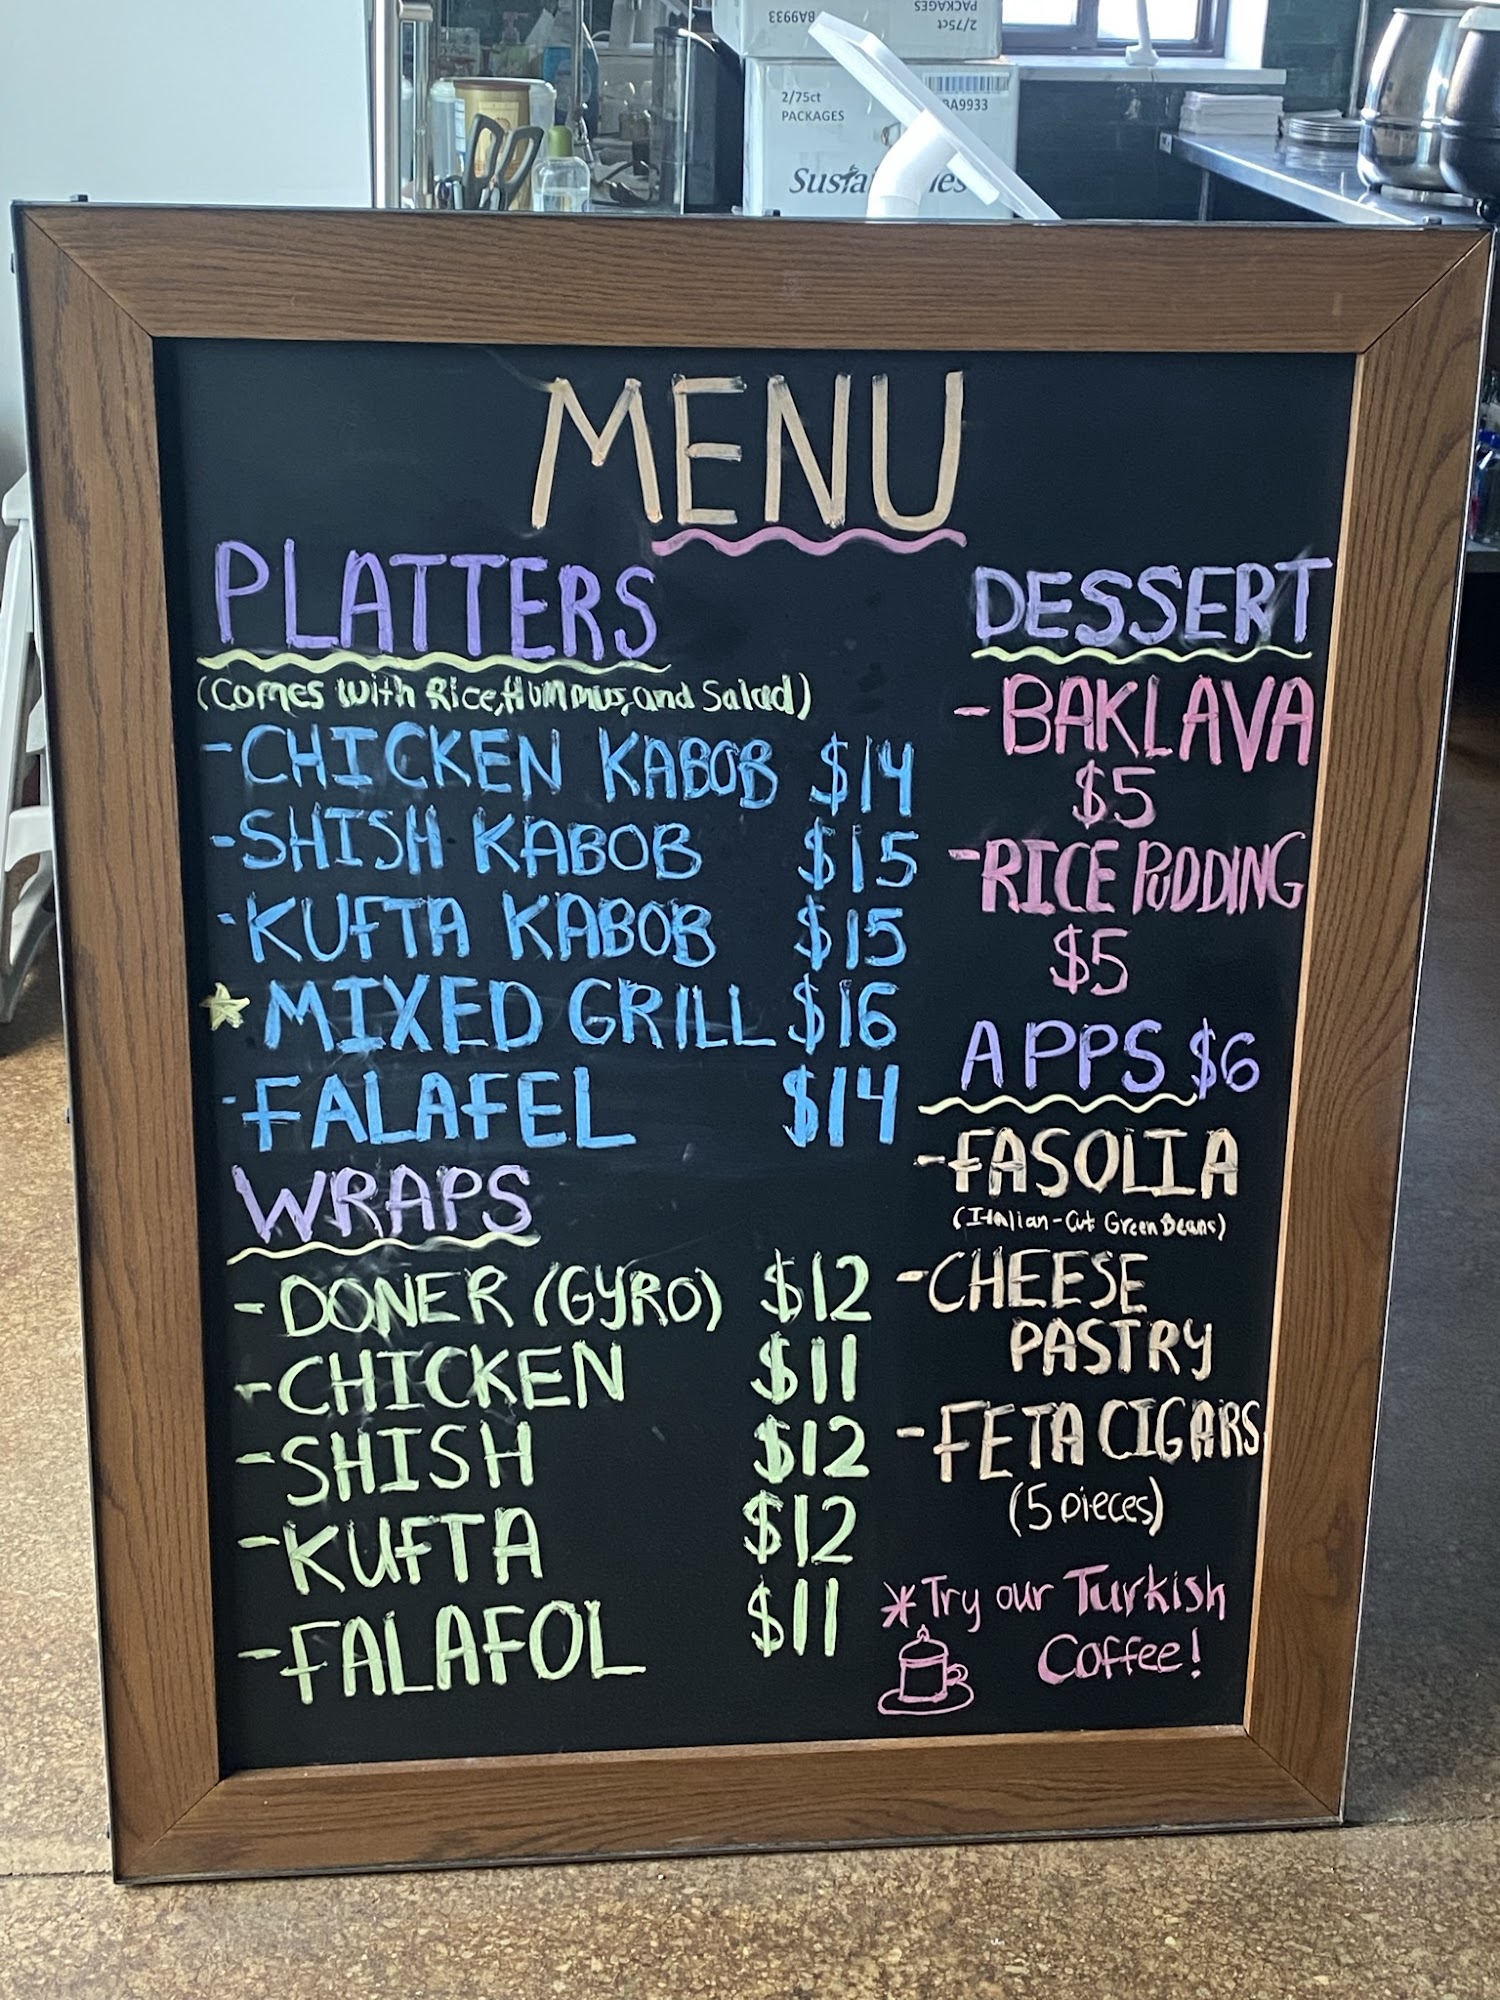 BA9933
2/75ct
PACKAGES
2/75ct
PACKAGES
BA9933
MENU
PLATTERS
(Comes with Rice, Hummus, and Salad)
-CHICKEN KABOB $14
-SHISH KABOB $15
-KUFTA KABOB $15
MIXED GRILL $16
-FALAFEL $14
WRAPS
-DONER (GYRO) $12
-CHICKEN $11
-SHISH $12
-KUFTA $12
-FALAFOL $11
DESSERT
-BAKLAVA
$5
-RICE PUDDING
$5
APPS $6
-FASOLIA
(Italian-Cut Green Beans)
-CHEESE
PASTRY
-FETA CIGARS
(5 pieces)
*Try our Turkish
Coffee!